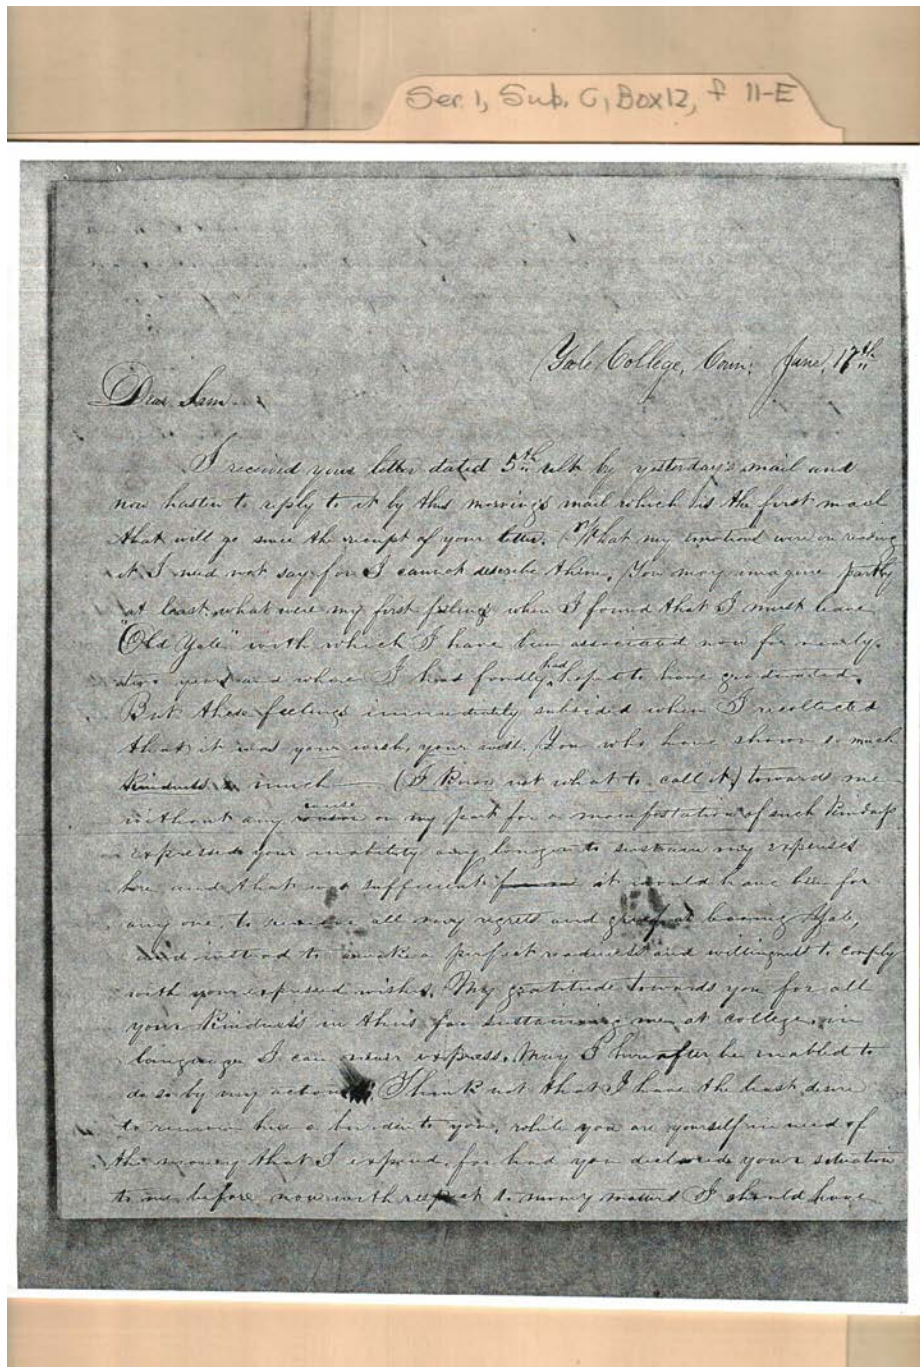 Ser. 1, Sub. G, Box 12, f 11-E
Yale College, Conn: June, 17th
Dear Sam
I received your letter dated 5th ult by yesterday's mail and
now hasten to reply to it by this morning's mail which is the first mail
that will go since the receipt of your letter. What my emotions were on reading
it I need not say for I cannot describe them. You may imagine partly
at least what were my first feelings when I found that I must leave
"Old Yale" with which I have been associated now for nearly
two years and where I had fondly had hoped to have graduated.
But these feelings immediately subsided when I recollected
that it was your wish, your will. You who have shown so much
kindness & much — (I know not what to call it) towards me
without any cause on my part for a manifestation of such kindness
expressed your inability any longer to sustain my expenses
here and that was sufficient it would have been for
any one to remove all my regrets and grief at leaving Yale,
and instead to awake a perfect readiness and willingness to comply
with your expressed wishes. My gratitude towards you for all
your kindness in thus far sustaining me at college, in
language I can never express. May I hereafter be enabled to
do so by my actions. Think not that I have the least desire
to remain here a burden to you, while you are yourself in need of
the money that I expend, for had you declared your situation
to me before now with respect to money matters I should have